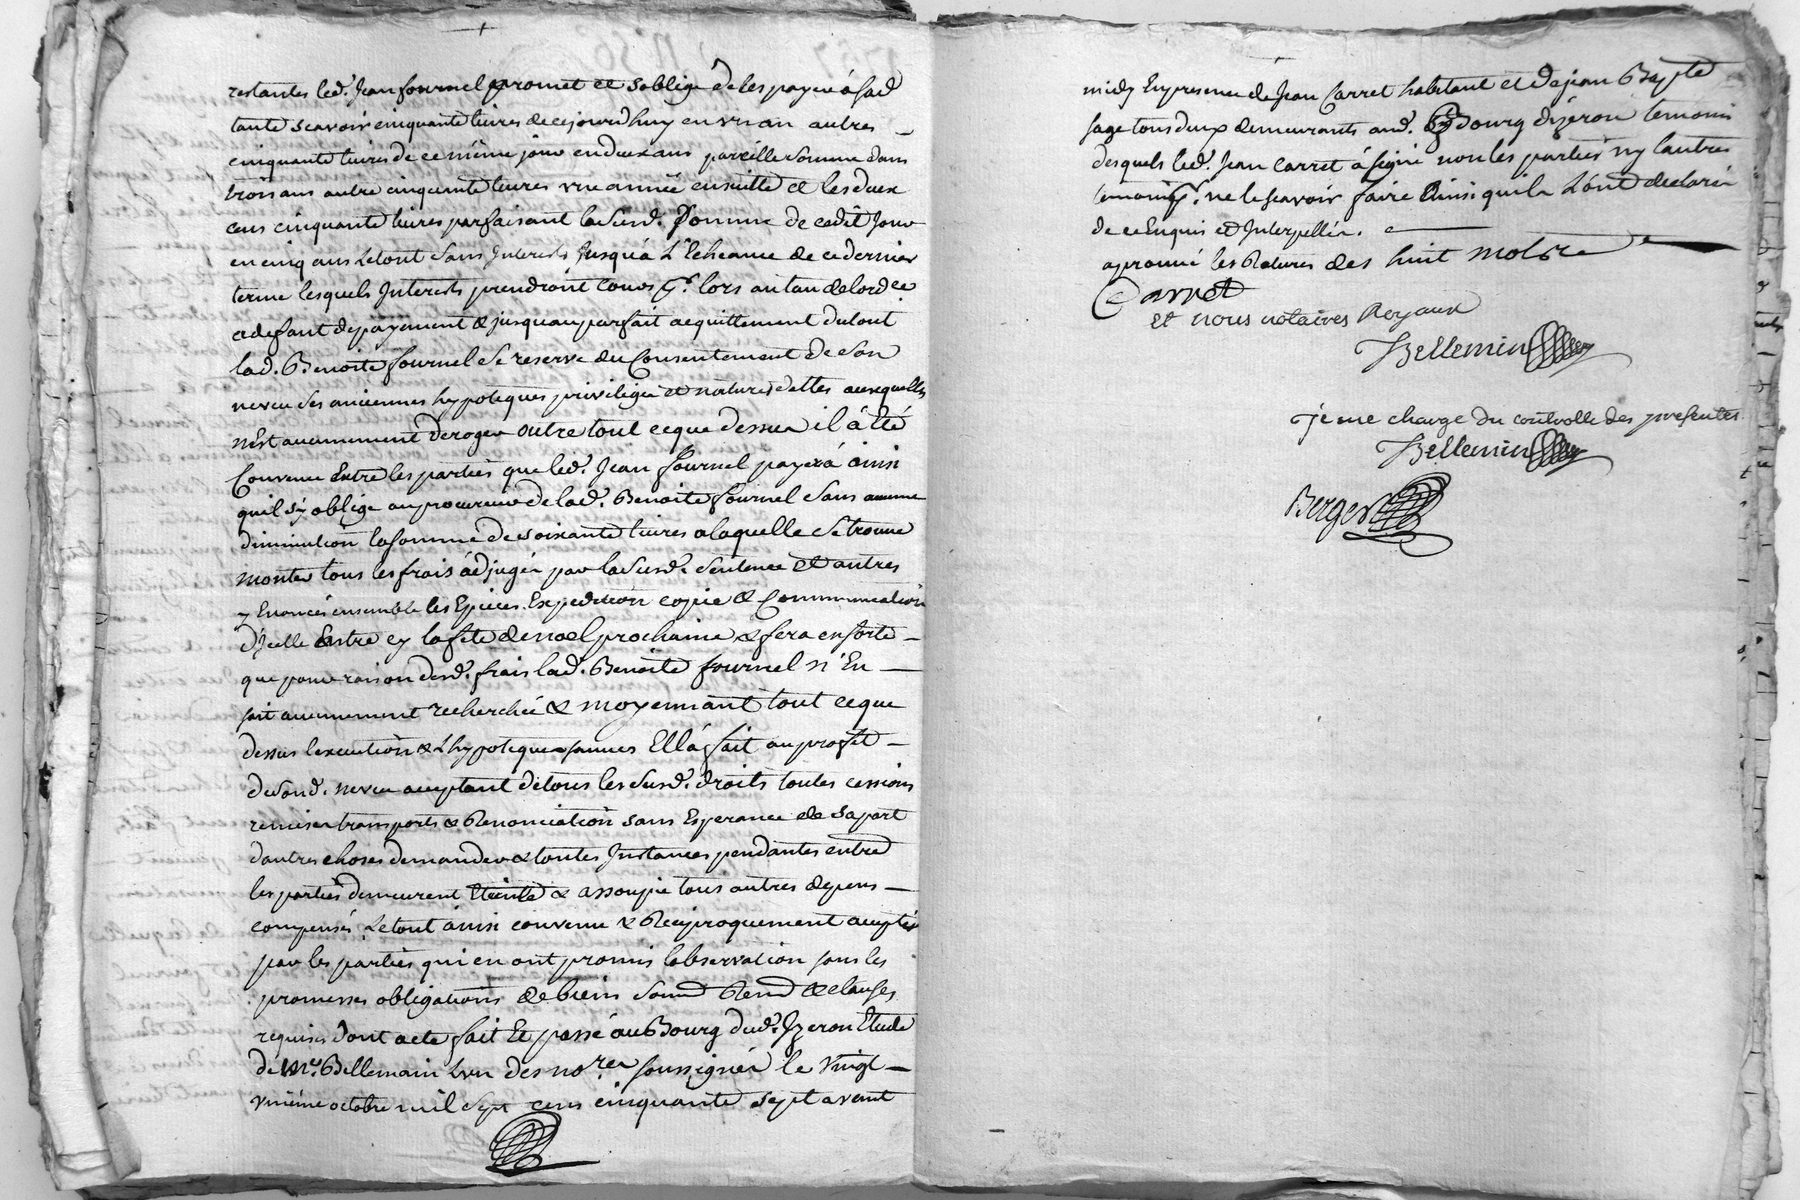 restantes led. Jean fournel promet et soblige de les payer à sad
tante scavoir cinquante livres de cejourdhuy en vn an autres
cinquante livres de ce même jour en deux ans pareille somme dans
trois ans autre cinquante livres vne année ensuitte et les deux
cens cinquante livres parfaisant lasusd. somme de cedit jour
en cinq ans Letout sans Interests jusquá L'Echeance de ce dernier
terme lesquels Interests prendront cours lors au tau delord.ce
a defaut depayement & jusquau parfait acquittement dutout
lad. Benoite fournel se reserve du Consentement de son
neveu ses anciennes hypoteques privilegie et nature dettes auxquelles
nest aucunement deroger outre tout ceque dessus il á été
Convenu Entre les parties que led. Jean fournel payera ainsi
quil s'y oblige au procureur de lad. Benoite fournel sans aucune
diminution lasomme de soixante livres a laquelle se trouve
monter tous les frais adjugés par lasusd. sentence et autres
y Enoncés ensemble les Epices Expedition copie & Communication
d'jcelle Entre cy lafete de noel prochaine & fera ensorte
que pour raison desd. frais lad. Benoite fournel n'En
soit aucunement recherchée & moyennant tout ceque
dessus lexecution & lhypoteque Ellá fait au profit
de sond. neveu acceptant de tous les susd. droits toutes cessions
remises transports & Renonciation sans Esperance de sapart
dautres choses demander & toutes Instances pendantes entre
les parties demeurent Eteinte & assoupie tous autres depens
compensés Letout ainsi convenu & Reciproquement acceptés
par les parties qui en ont promis lobservation sous les
promesses obligations de biens Soum Renon & clauses
requises dont acte fait Et passé au Bourg dud. Jzeron Etude
de Me. Bellemain Lun des no.res soussignés le vingt
vnieme octobre mil sept cens cinquante sept avant
midy En presence de Jean Carret habitant et de jean Bapte
sage tous deux demeurants aud. Bourg dizeron temoins
desquels led. Jean Carret á signé non les parties ny lautres
temoins ne le scavoir faire Ainsi quils Lont declaré
de ce Enquis et Interpellés.
aprouvé les Ratures des huit mots
Carret
Et nous notaires Royaux
Bellemin
je me charge du controlle des presentes
Bellemin
Berger